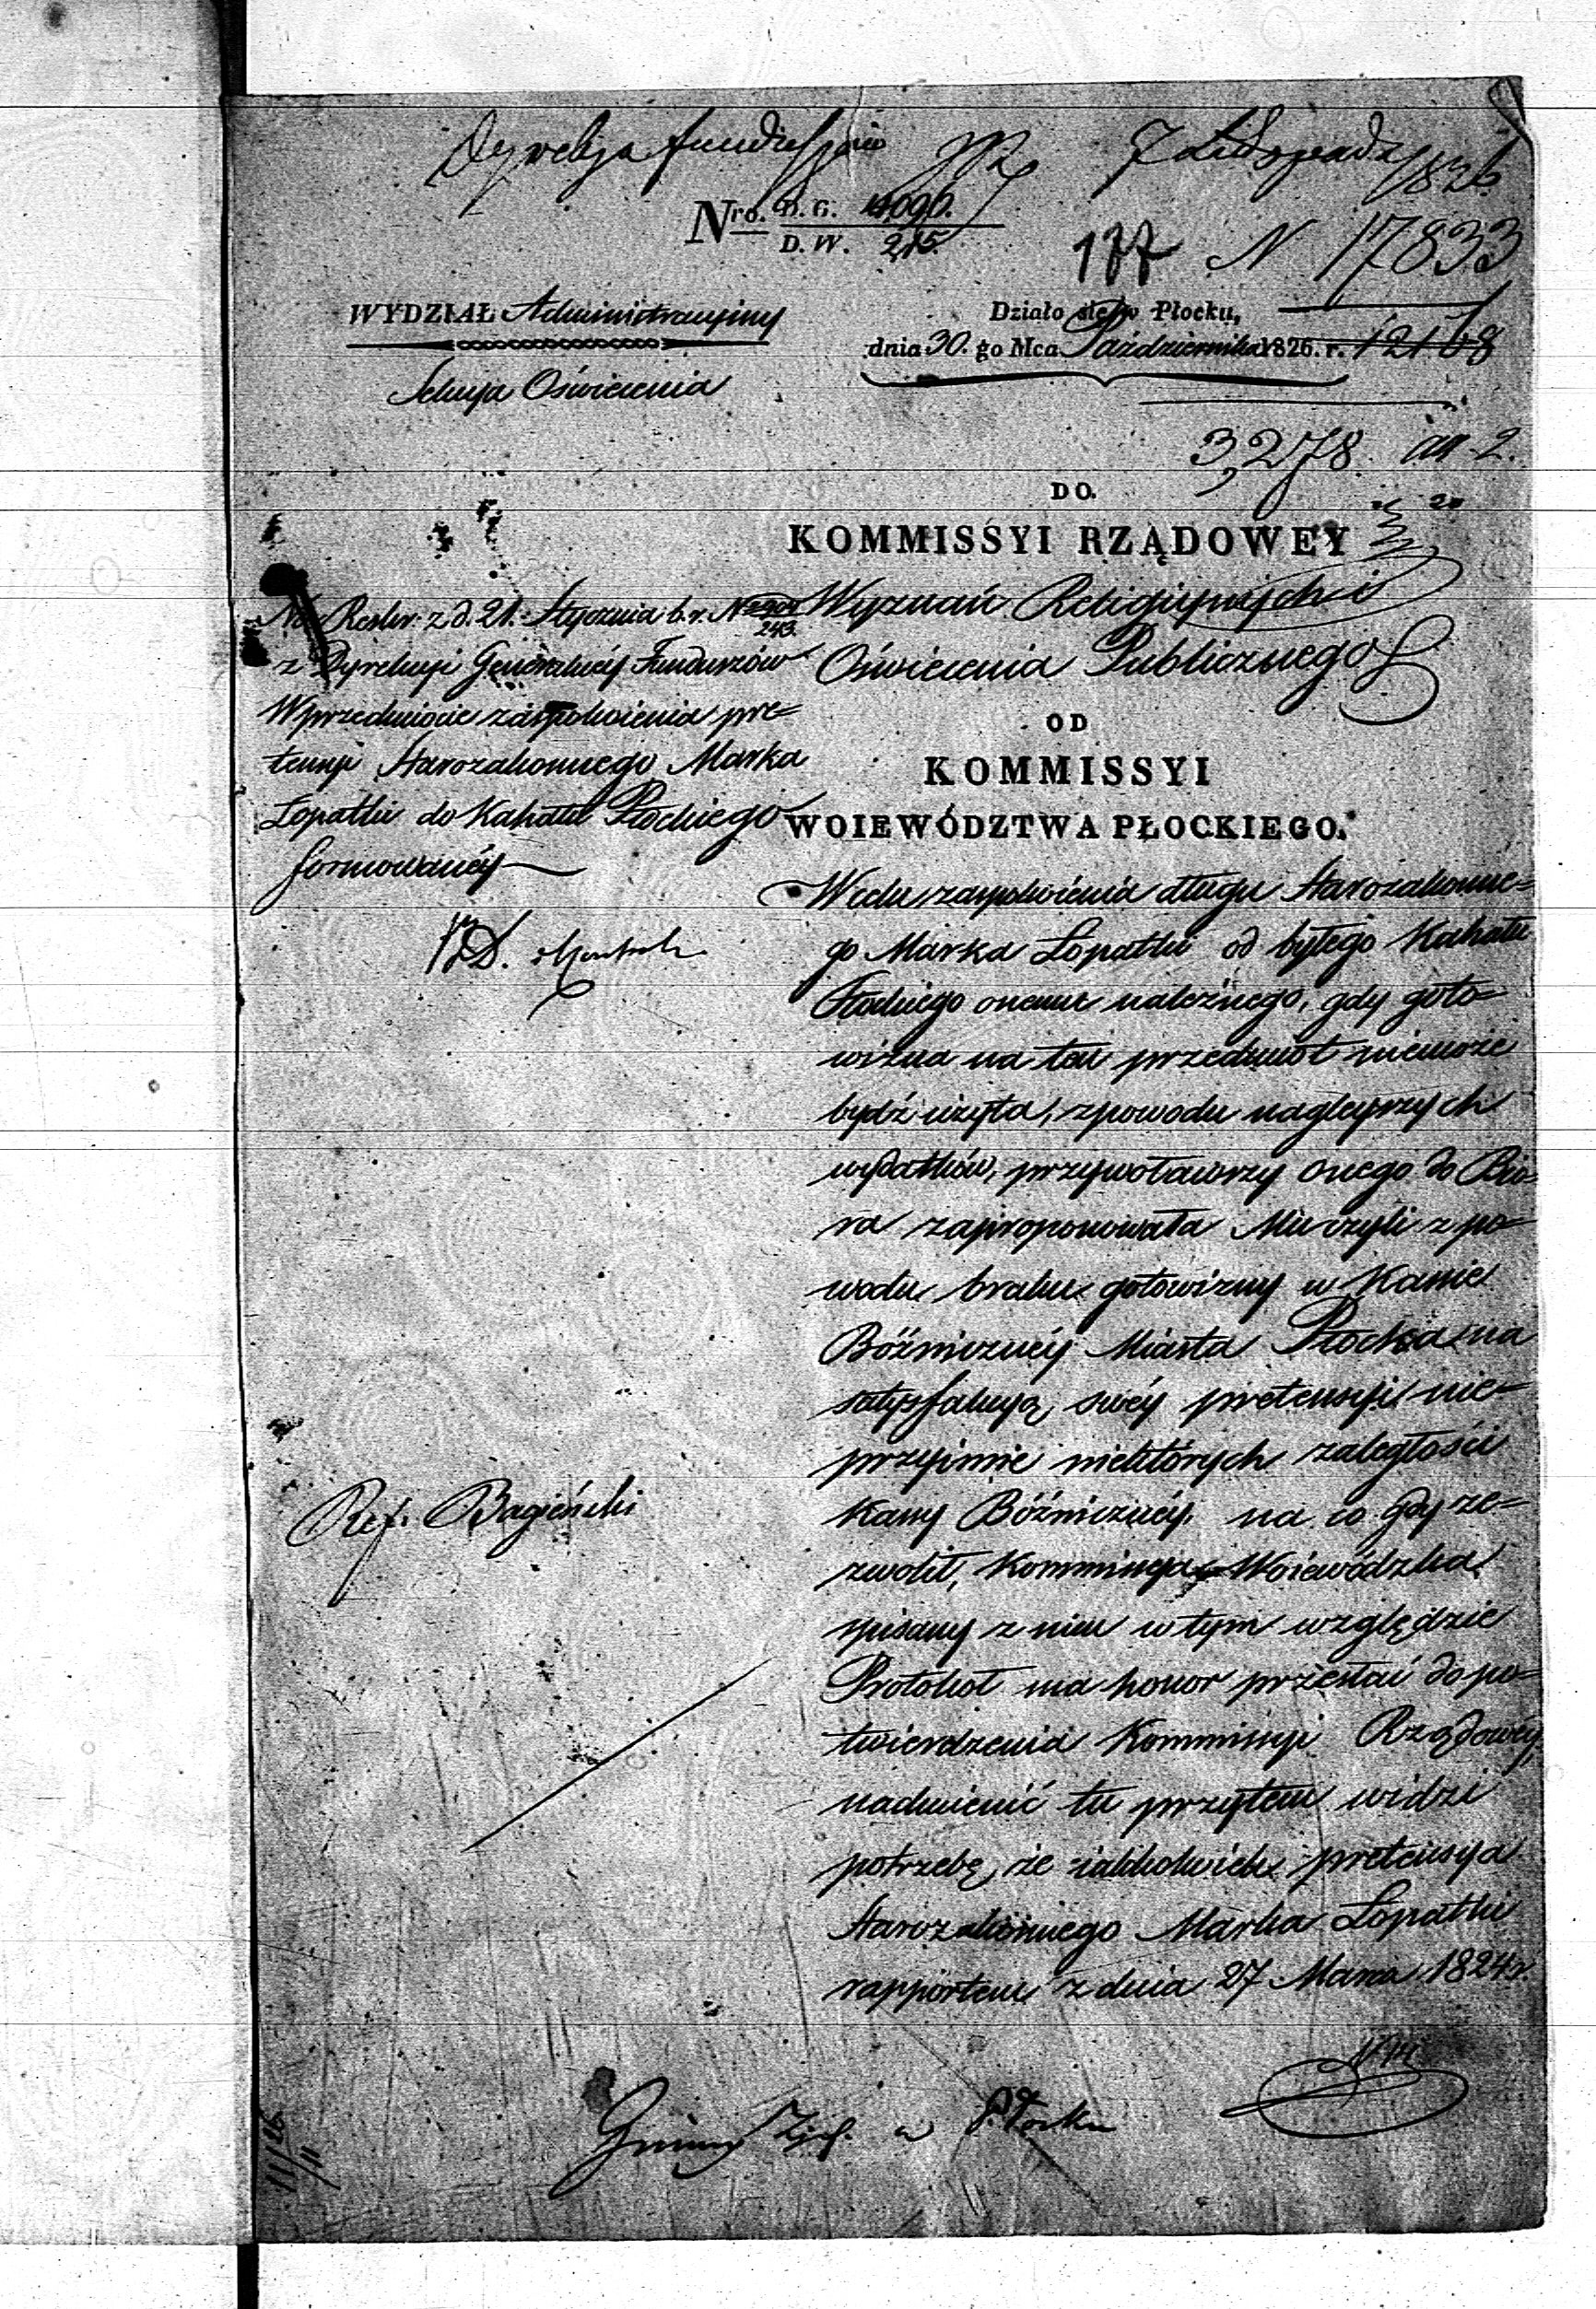 7 Listopada
1826
Nro. D. G. 4,090.
D. W. 215.
177 N 17833
WYDZIAŁ Administracyiny
Działo się w Płocku,
dnia 30. go Mca Października 1826. r. 12168
Sekcya Oświecenia
3,278 an 2.
DO.
KOMMISSYI RZĄDOWEY
Wyznań Religiynych i
Oświecenia Publicznego
Na Reskr. z d. 21. Stycznia b. r. N
243
z Dyrekcyi Generalnéy Funduszów
W przedmiocie zaspokoienia pre=
tensyi Starozakonnego Marka
Lopatki do Kahału Płockiego
formowanéy
OD
KOMMISSYI
WOIEWÓDZTWA PŁOCKIEGO.
W celu zaspokoienia długu Starozakonne=
go Marka Lopatki od byłego Kahału
Płockiego onemu należnego, gdy goto=
wizna na ten przedmiot niemoże
bydź użyta, z powodu nagleyszych
wydatków, przywoławszy onego do Biu=
ra zaproponowała Mu czyli z po=
wodu braku gotowizny w Kassie
Bóżniczney Miasta Płocka na
satysfakcyą swéy pretensyi nie=
przyimie niektórych zaległości
Kassy Bóżniczney, na co gdy ze=
zwolił, Kommissya Woiewódzka
spisany z nim w tym względzie
Protokoł ma honor przesłać do po=
twierdzenia Kommissyi Rządowéy,
nadmienić tu przytem widzi
potrzebę, że iakkolwiek pretensya
Starozakonnego Marka Lopatki
rapportem z dnia 27 Marca 1824 r.
Ref. Bagieński
Gminy Żyd. w Płocku